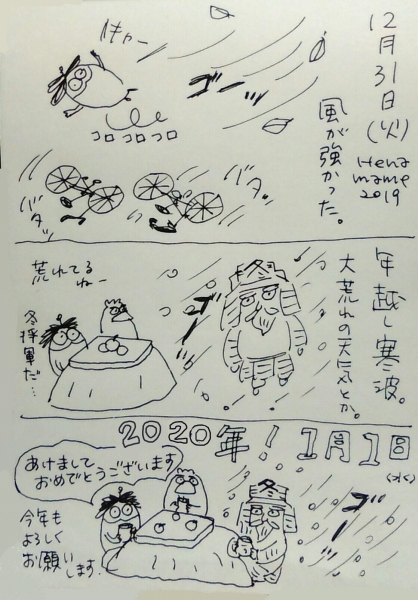 12月31日(火)
Hena
mame
2019
風が強かった。
キャー
ゴーッ
コロコロコロ
バタッ
バタッ
年越し寒波。
大荒れの天気とか。
冬
ゴーッ
荒れてる
ねー
冬将軍だ…
2020年!1月1日
(水)
あけまして
おめでとうございます
冬
ゴーッ
今年も
よろしく
お願い
します。